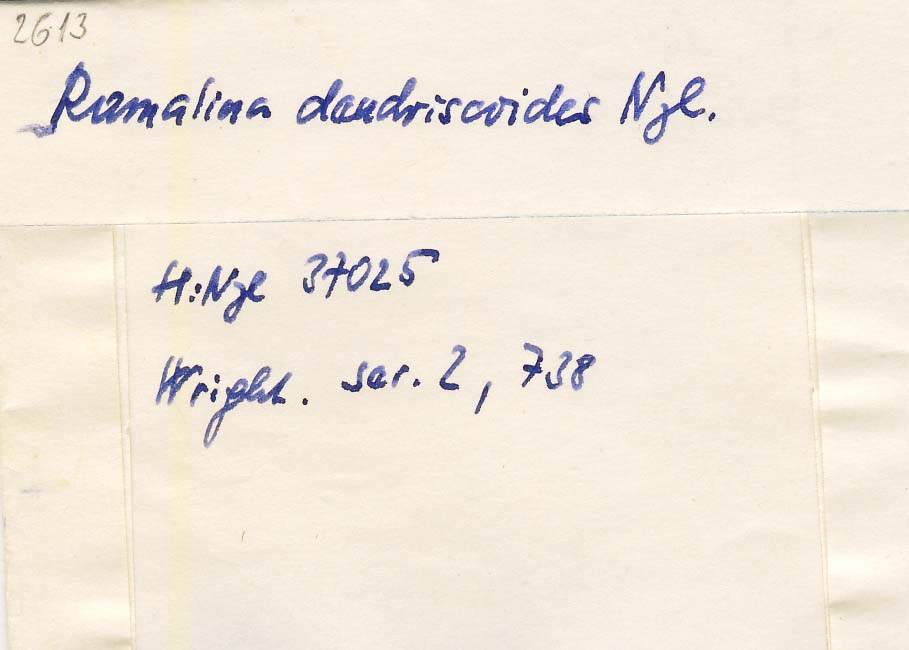 2613
Ramalina dendriscoides Nyl.
H:Nyl 37025
Wright. ser. 2, 738